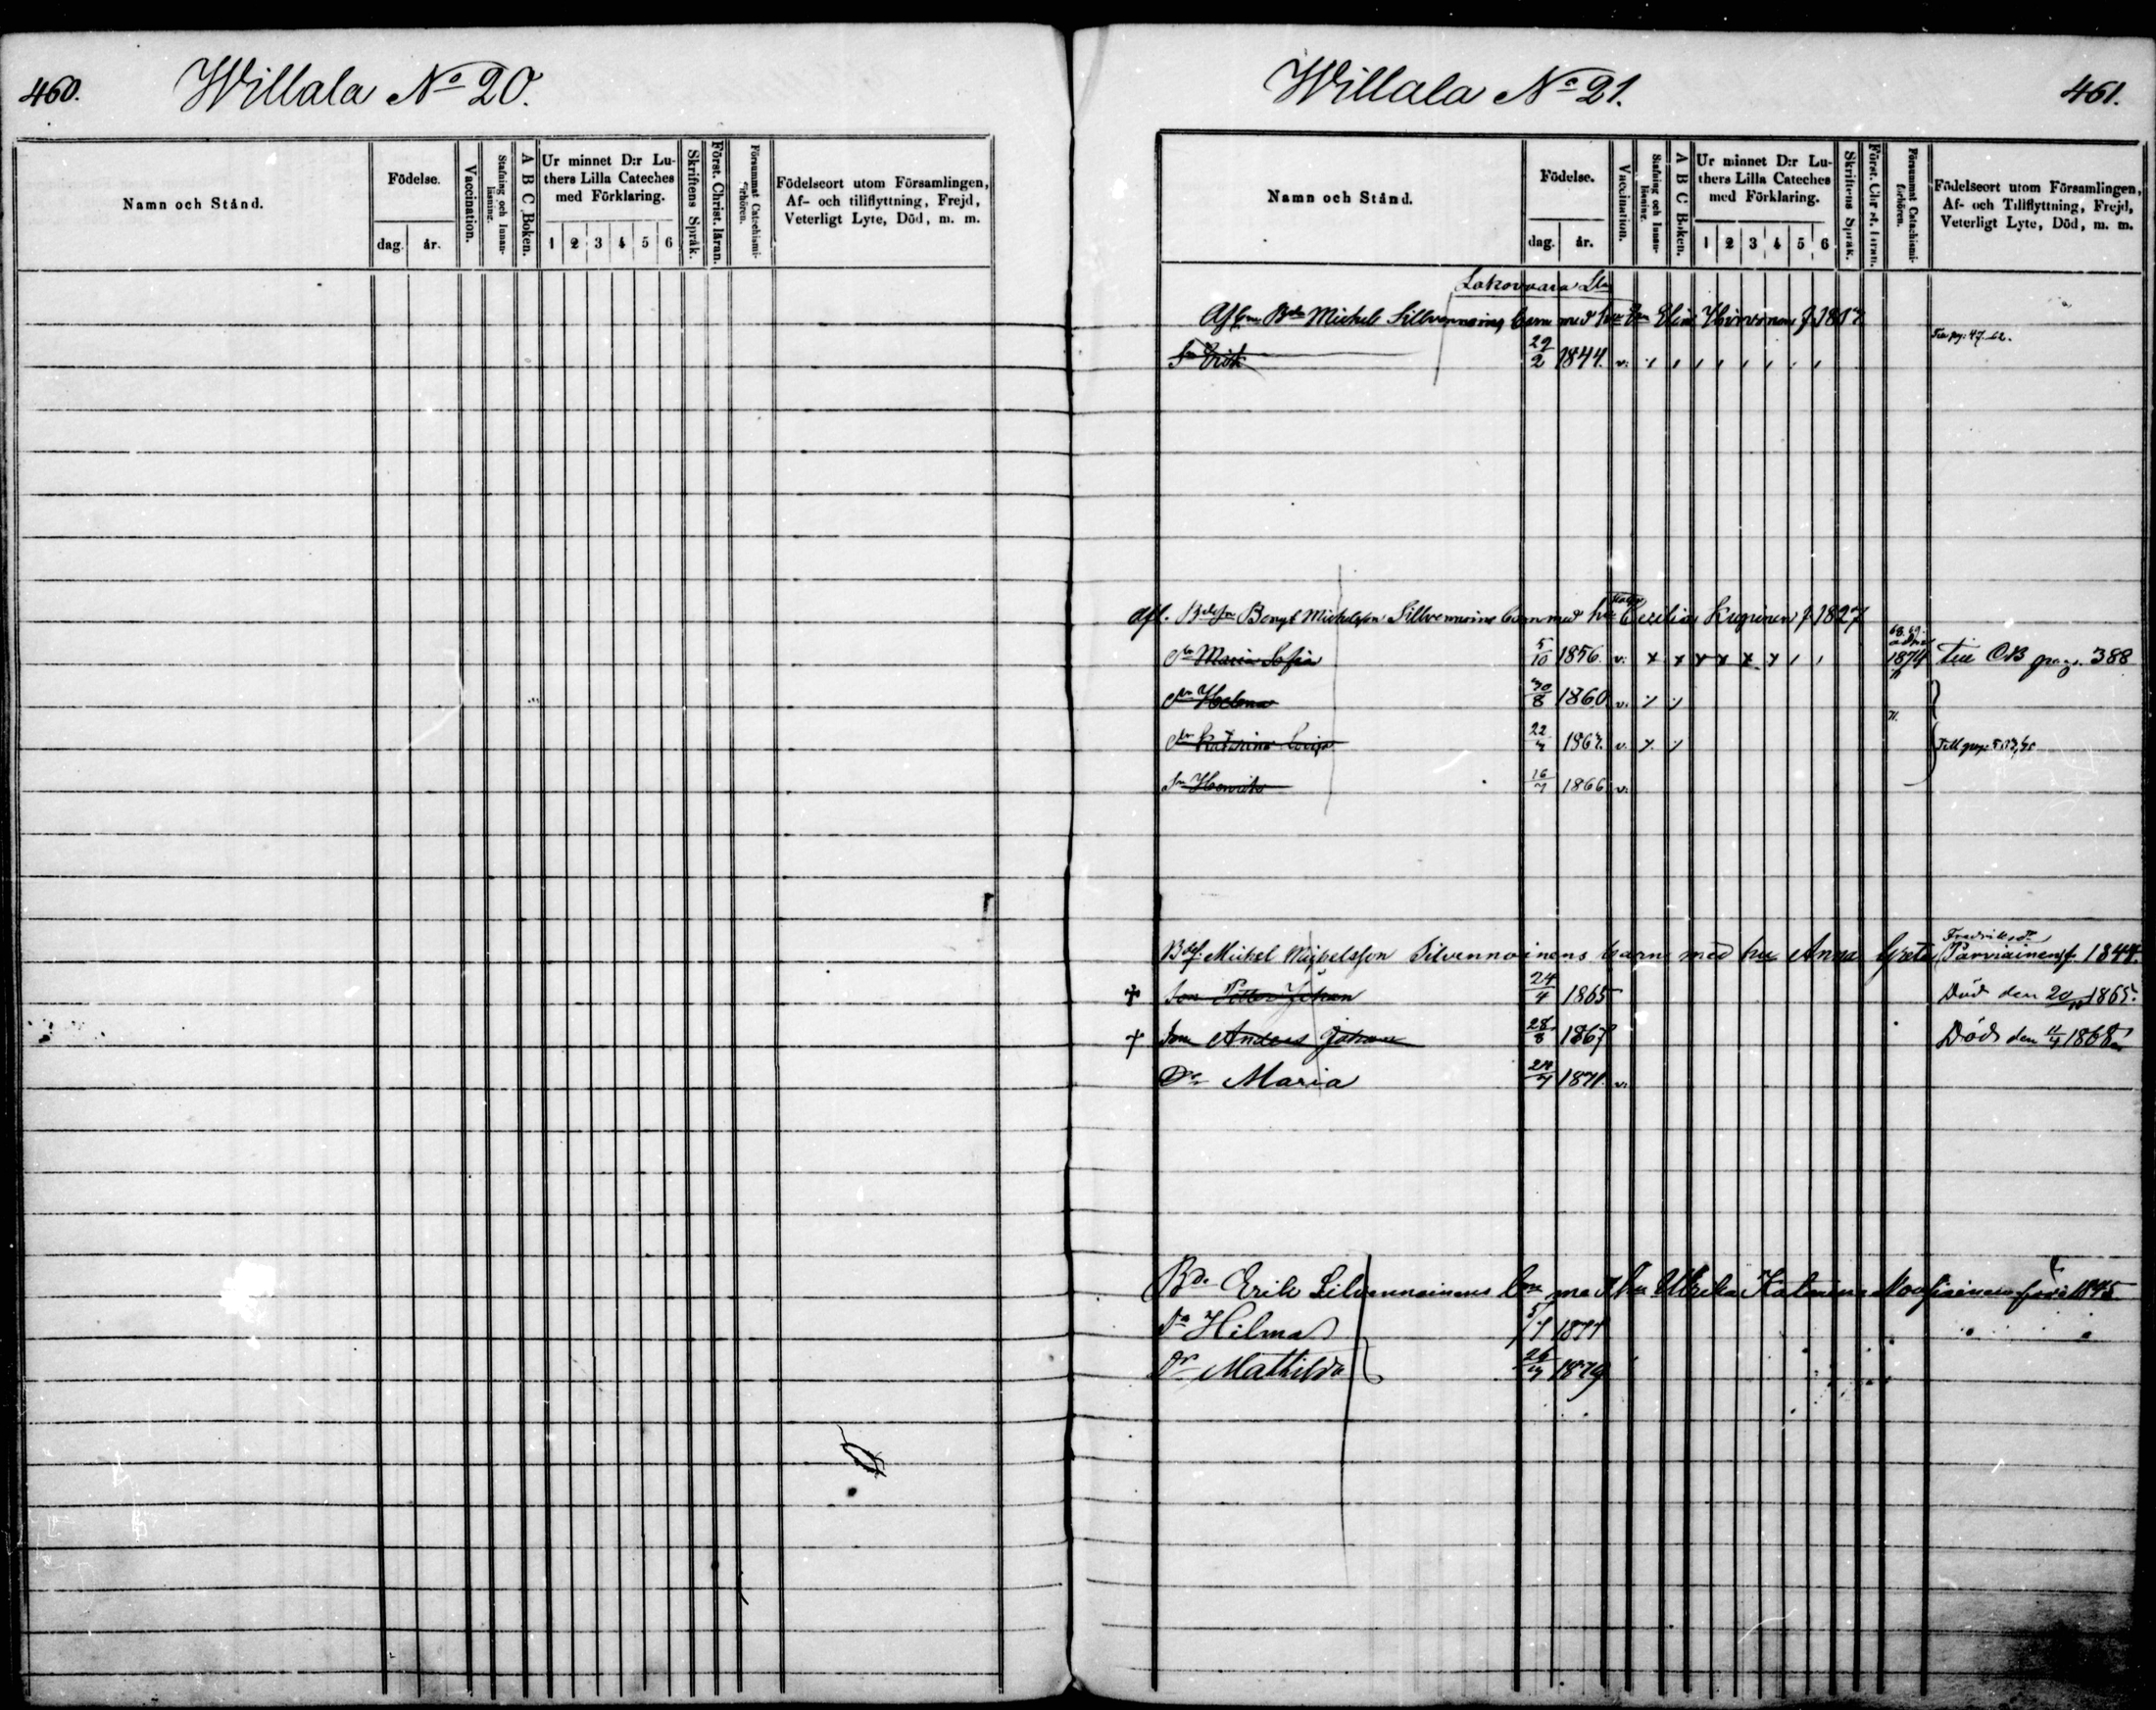 460.
Willala No 20.
Namn och Stånd.
Födelse.
dag. år.
Vaccination.
Stafning och Innan-läsning.
A B C Boken.
Ur minnet D:r Lu-
thers Lilla Cateches
med Förklaring.
1 2 3 4 5 6
Skriftens Språk.
Först. Christ. läran.
Försummat Catechismi-förhören.
Födelseort utom Församlingen,
Af- och tillflyttning, Frejd,
Veterligt Lyte, Död, m. m.
Willala No 21.
461.
Namn och Stånd.
Födelse.
dag. år.
Vaccination.
Stafning och Innan-läsning.
A B C Boken.
Ur minnet D:r Lu-
thers Lilla Cateches
med Förklaring.
1 2 3 4 5 6
Skriftens Språk.
Först. Christ. läran.
Försummat Catechismi-förhören.
Födelseort utom Församlingen,
Af- och Tillflyttning, Frejd,
Veterligt Lyte, Död, m. m.
Lakovaara
Michel Sillvennoins barn med hu Elin Hirvonen f 1807
Sn Erik 29/2 1844. v.
afl. Bengt Michelsson Sillvennoins barn med hu Cecilia Kuprinen f 1827
Dr Maria Sofia 5/10 1856. v. x x x x x x 1874 till CB pag. 388
Dr Helena 30/8 1860 v.
Dr Katarina Lovisa 22/7 1862. v. x
Sn Henrik 16/7 1866 v.
Michel Michelsson Silvennoinens barn med hu Anna Greta Fredriksdr Parviainen f. 1844.
† Son Petter Johan 24/4 1865 Död den 20/ 1865.
† Son Anders Johan 28/8 1867 Död den 11/4 1868
Dr Maria 24/7 1871. v.
Bd. Erik Silvennoinens med hu Ulrika Katarina född 1845
Dr Hilma 5/7 1877
Dr Mathilda 26/ 1879